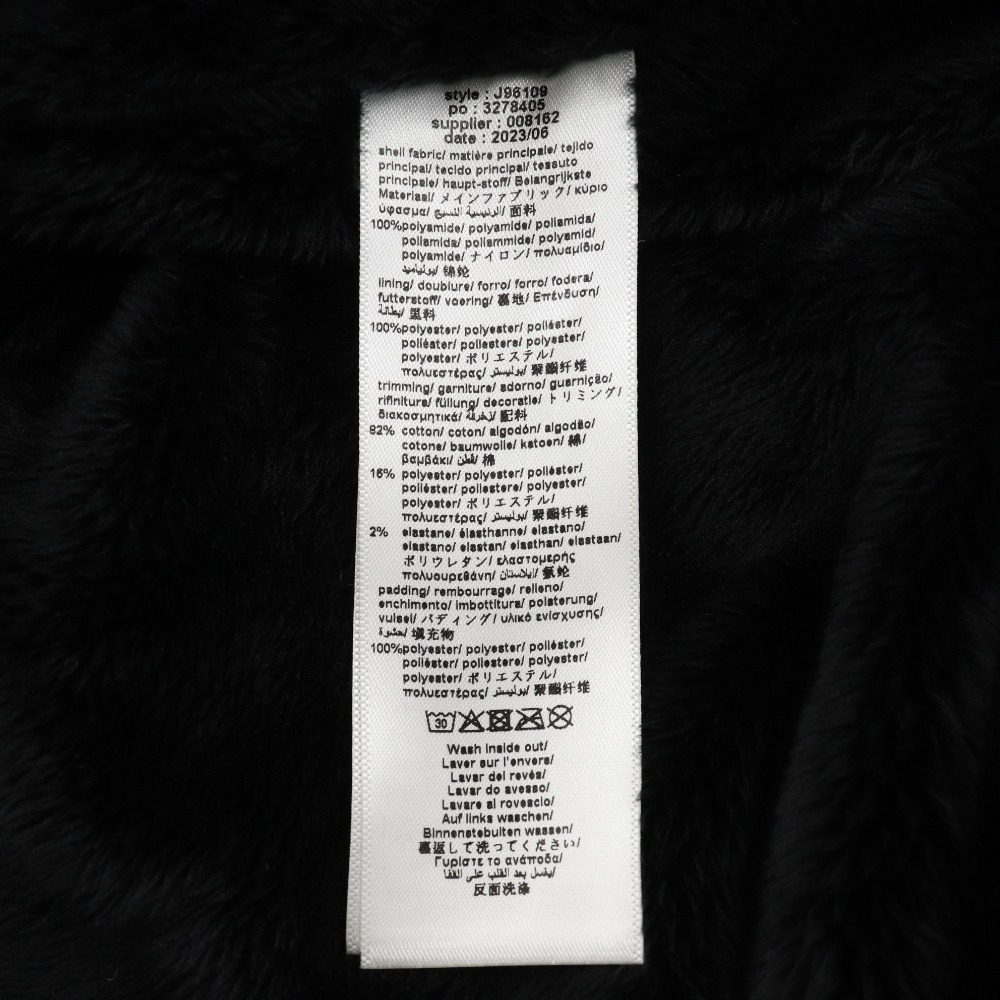 style : J96109
po : 3278405
supplier : 008162
date : 2023/06
shell fabric/ matière principale/ tejido
principal/ tecido principal/ tessuto
principale/ haupt-stoff/ Belangrijkste
Materiaal/ メインファブリック/ κύριο
ύφασμα/ الرئيسية النسيج/ 面料
100%polyamide/ polyamide/ poliamida/
poliamida/ poliammide/ polyamid/
polyamide/ ナイロン/ πολυαμίδιο/
بوليأميد/ 锦纶
lining/ doublure/ forro/ forro/ fodera/
futterstoff/ voering/ 裏地/ Επένδυση/
بطانة/ 里料
100%polyester/ polyester/ poliéster/
poliéster/ poliestere/ polyester/
polyester/ ポリエステル/
πολυεστέρας/ بوليستر/ 聚酯纤维
trimming/ garniture/ adorno/ guarnição/
rifiniture/ füllung/ decoratie/ トリミング/
διακοσμητικά/ زخرفة/ 配料
82% cotton/ coton/ algodón/ algodão/
cotone/ baumwolle/ katoen/ 綿/
βαμβάκι/ قطن/ 棉
16% polyester/ polyester/ poliéster/
poliéster/ poliestere/ polyester/
polyester/ ポリエステル/
πολυεστέρας/ بوليستر/ 聚酯纤维
2% elastane/ élasthanne/ elastano/
elastano/ elastan/ elasthan/ elastaan/
ポリウレタン/ ελαστομερής
πολυουρεθάνη/ إيلاستان/ 氨纶
padding/ rembourrage/ relleno/
enchimento/ imbottitura/ polsterung/
vulsel/ パディング/ υλικό ενίσχυσης/
حشوة/ 填充物
100%polyester/ polyester/ poliéster/
poliéster/ poliestere/ polyester/
polyester/ ポリエステル/
πολυεστέρας/ بوليستر/ 聚酯纤维
30
Wash inside out/
Laver sur l'envers/
Lavar del revés/
Lavar do avesso/
Lavare al rovescio/
Auf links waschen/
Binnenstebuiten wassen/
裏返して洗ってください/
Γυρίστε το ανάποδα/
يغسل بعد القلب على القفا/
反面洗涤